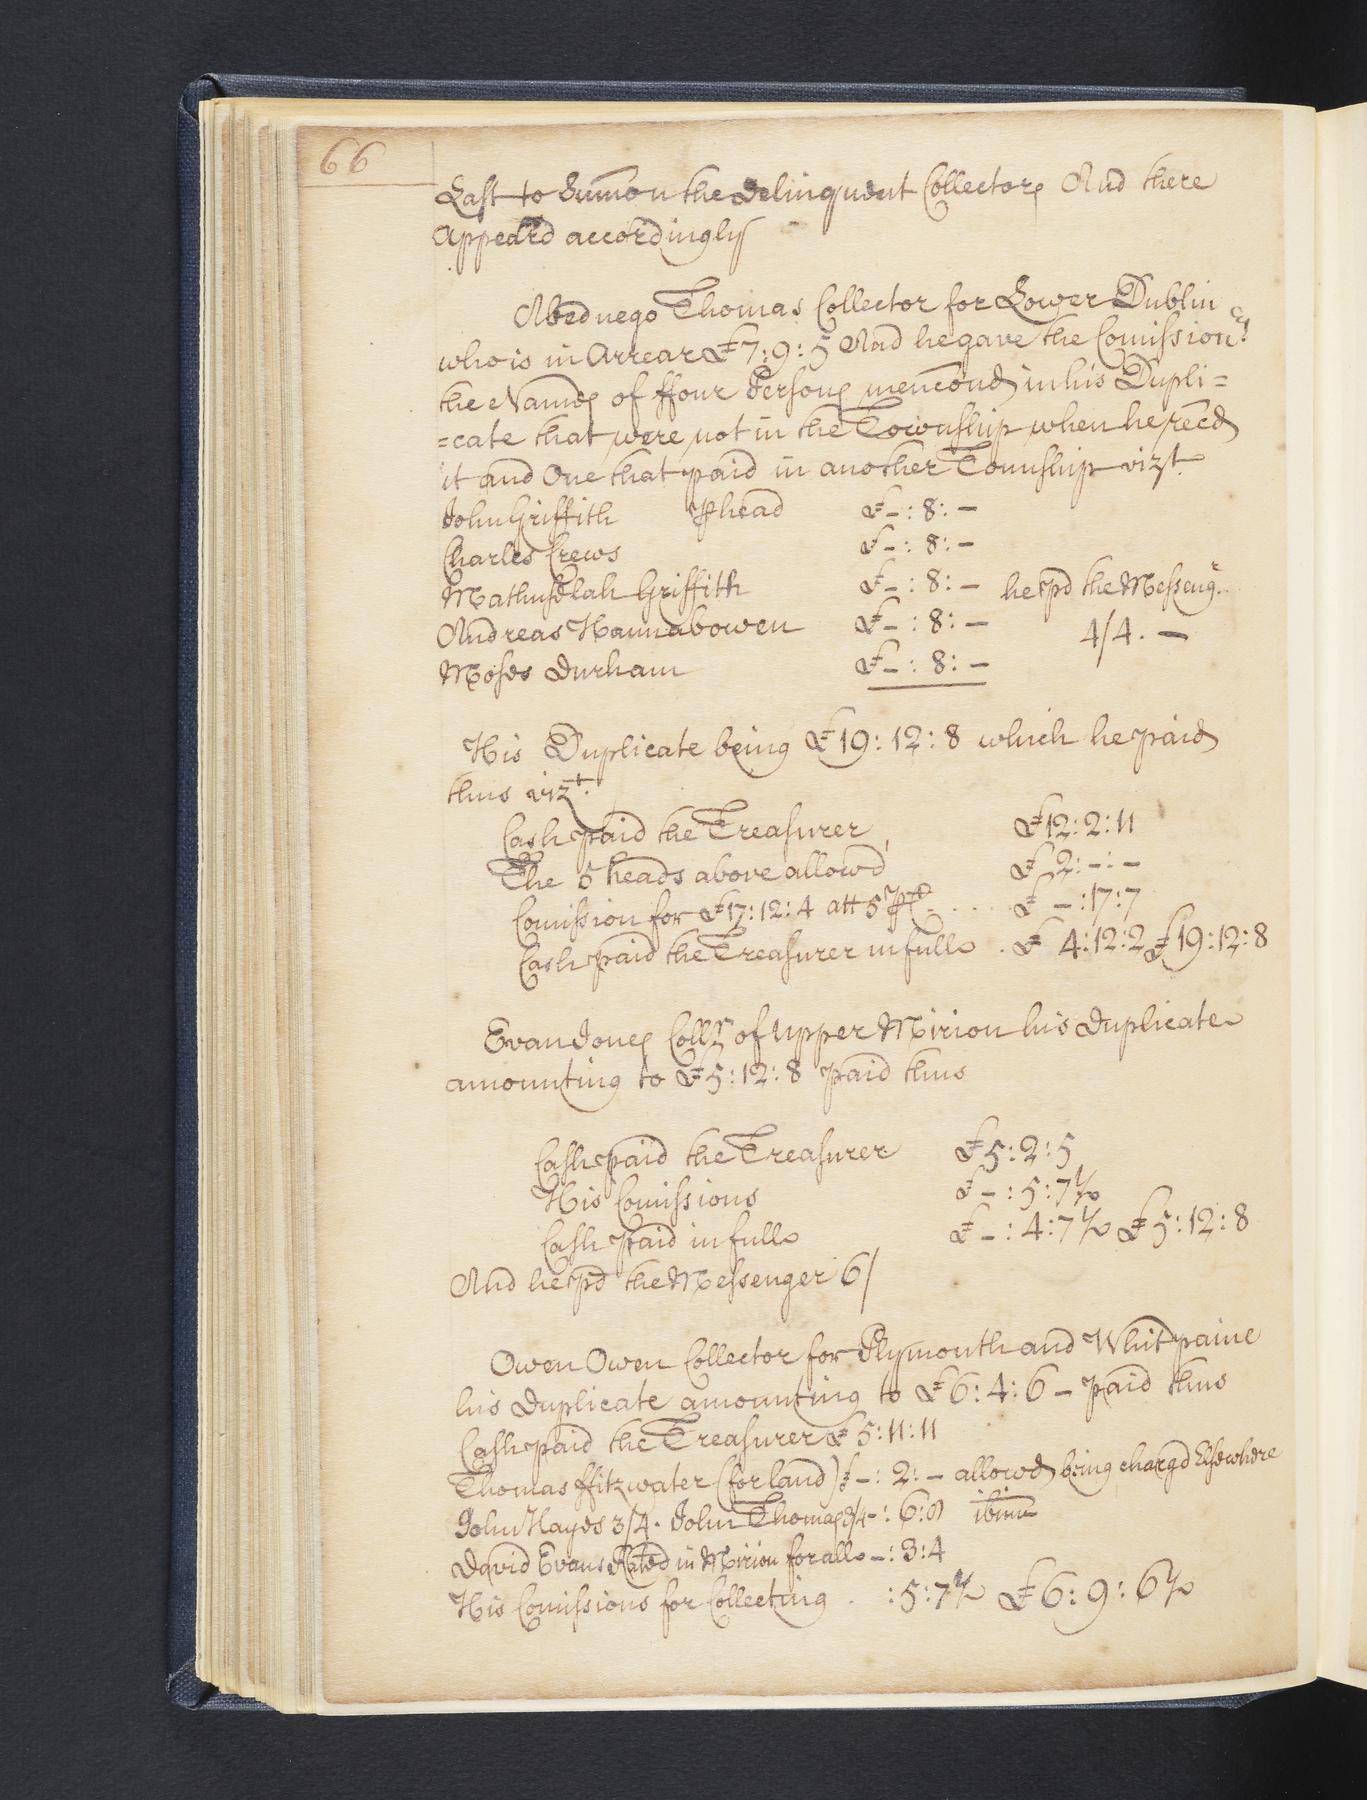 66
Last to Summon the Delinquent Collectors And there
Appeard accordingly
Abednego Thomas Collector for Lower Dublin
who is in Arrear £7:9:5 And he gave the Comissionrs
the Names of ffour Persons mencond in his Dupli=
=cate that were not in the Township when he recd
it and One that paid in another Township vizt
John Griffith ⅌ head £-:8:-
Charles Crews £-:8:-
Mathuselah Griffith £-:8:- he pd the Messengr
Andreas Hannabowen £-:8:- 4/4.-
Moses Durham £-:8:-
His Duplicate being £19:12:8 which he paid
thus vizt.
Cash paid the Treasurer £12:2:11
The 5 heads above allowd £2:-:-
Comission for £17:12:4 att 5 ⅌ Ct. £-:17:7
Cash paid the Treasurer in full . £4:12:2 £19:12:8
Evan Jones Collr of upper Mirion his Duplicate
amounting to £5:12:8 paid thus
Cash paid the Treasurer £5:2:5
His Comissions £-:5:7½
Cash Paid in full £-:4:7½ £5:12:8
And he pd the Messenger 6/
Owen Owen Collector for Plymouth and Whitpaine
his Duplicate amounting to £6:4:6 - paid thus
Cash paid the Treasurer £5:11:11
Thomas ffitzwater (for land) £-:2:- allowd being chargd Elsewhere
John Hayes 3/4. John Thomas 3/4 -:6:8
David Evans Rated in Mirion for all -:3:4
His Comissions for Collecting . :5:7½ £6:9:6½